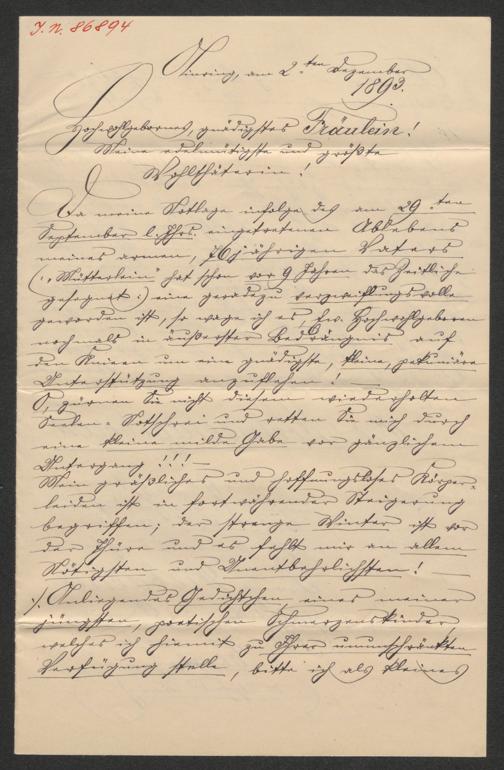 J. N. 86894
am 2.ten Dezember
1893.
Hochwohlgebornes, gnädigstes Fräulein!
Meine edelmütigste und größte
Wohlthäterin!
Da meine Notlage infolge des am 29.ten
September l. Jhrs. eingetretenen Ablebens
meines armen, 76jährigen Vaters
(: „Mütterlein“ hat schon vor 9 Jahren das Zeitliche
gesegnet :) eine geradezu verzweiflungsvolle
geworden ist, so wage ich es, Ew. Hochwohlgeboren
nochmals in äußerster Bedrängnis auf
den Knieen um eine gnädigste, kleine, pekuniäre
Unterstützung anzuflehen! —
O, zürnen Sie nicht diesem wiederholten
Seelen-Notschrei und retten Sie mich durch
eine kleine milde Gabe vor gänzlichem
Untergang!!! —
Mein gräßliches und hoffnungsloses Körper-
leiden ist in fortwährender Steigerung
begriffen; der strenge Winter ist vor
der Thüre und es fehlt mir an allem
Nötigsten und Unentbehrlichsten! —
./. Anliegendes Gedichtchen eines meiner
jüngsten, poetischen Schmerzenskinder
welches ich hiemit zu Ihrer unumschränkten
Verfügung stelle, bitte ich als kleines